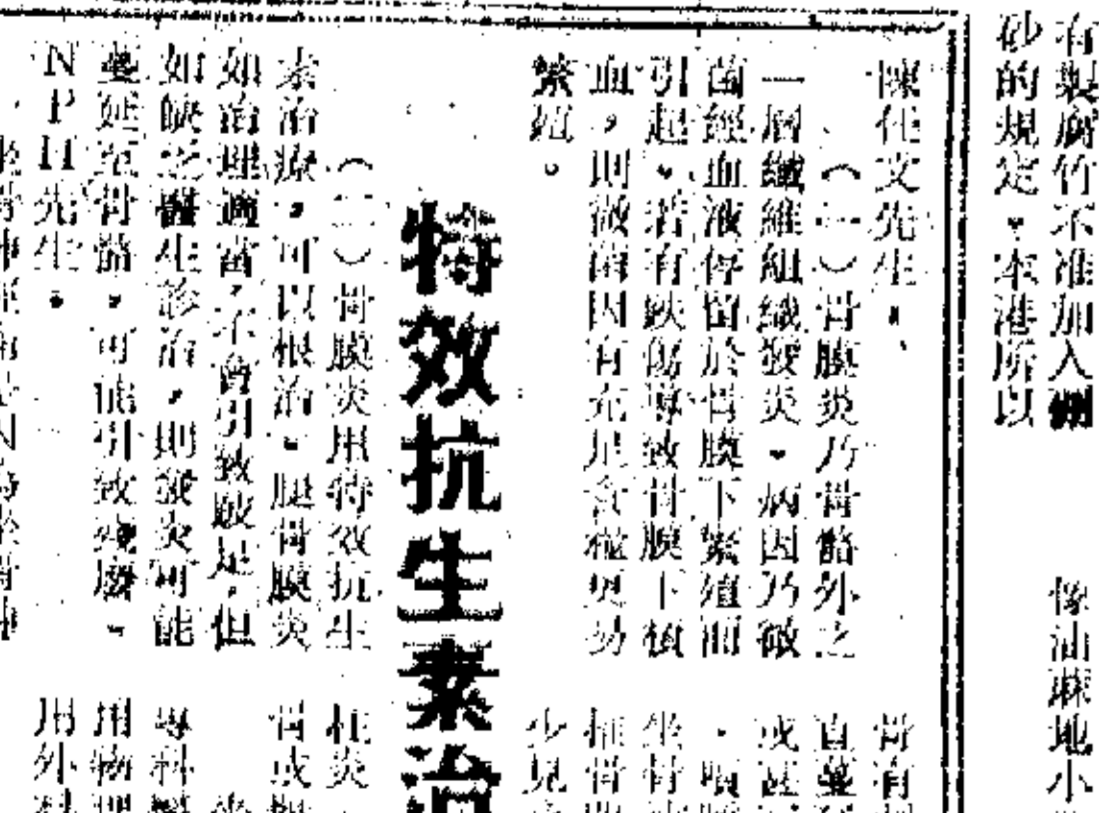 有製腐竹不准加入硼
砂的規定。本港所以
像油麻地小
陳任文先生:
(一)骨膜炎乃骨骼外之
一層纖維組織發炎。病因乃微
菌經血液停留於骨膜下繁殖而
引起。若有跌傷導致骨膜下積
血,則微菌因有充足食糧更易
繁殖。
骨有
直蔓
或甚
坐骨
少見
特效抗生素治
(二)骨膜炎用特效抗生
素治療,可以根治。腿骨膜炎
如治理適當,不會引致跛足,但
如缺乏醫生診治,則發炎可能
蔓延至骨骼,可能引致殘廢。
NPH先生:
柱炎
骨或
專科
用物理
用外科